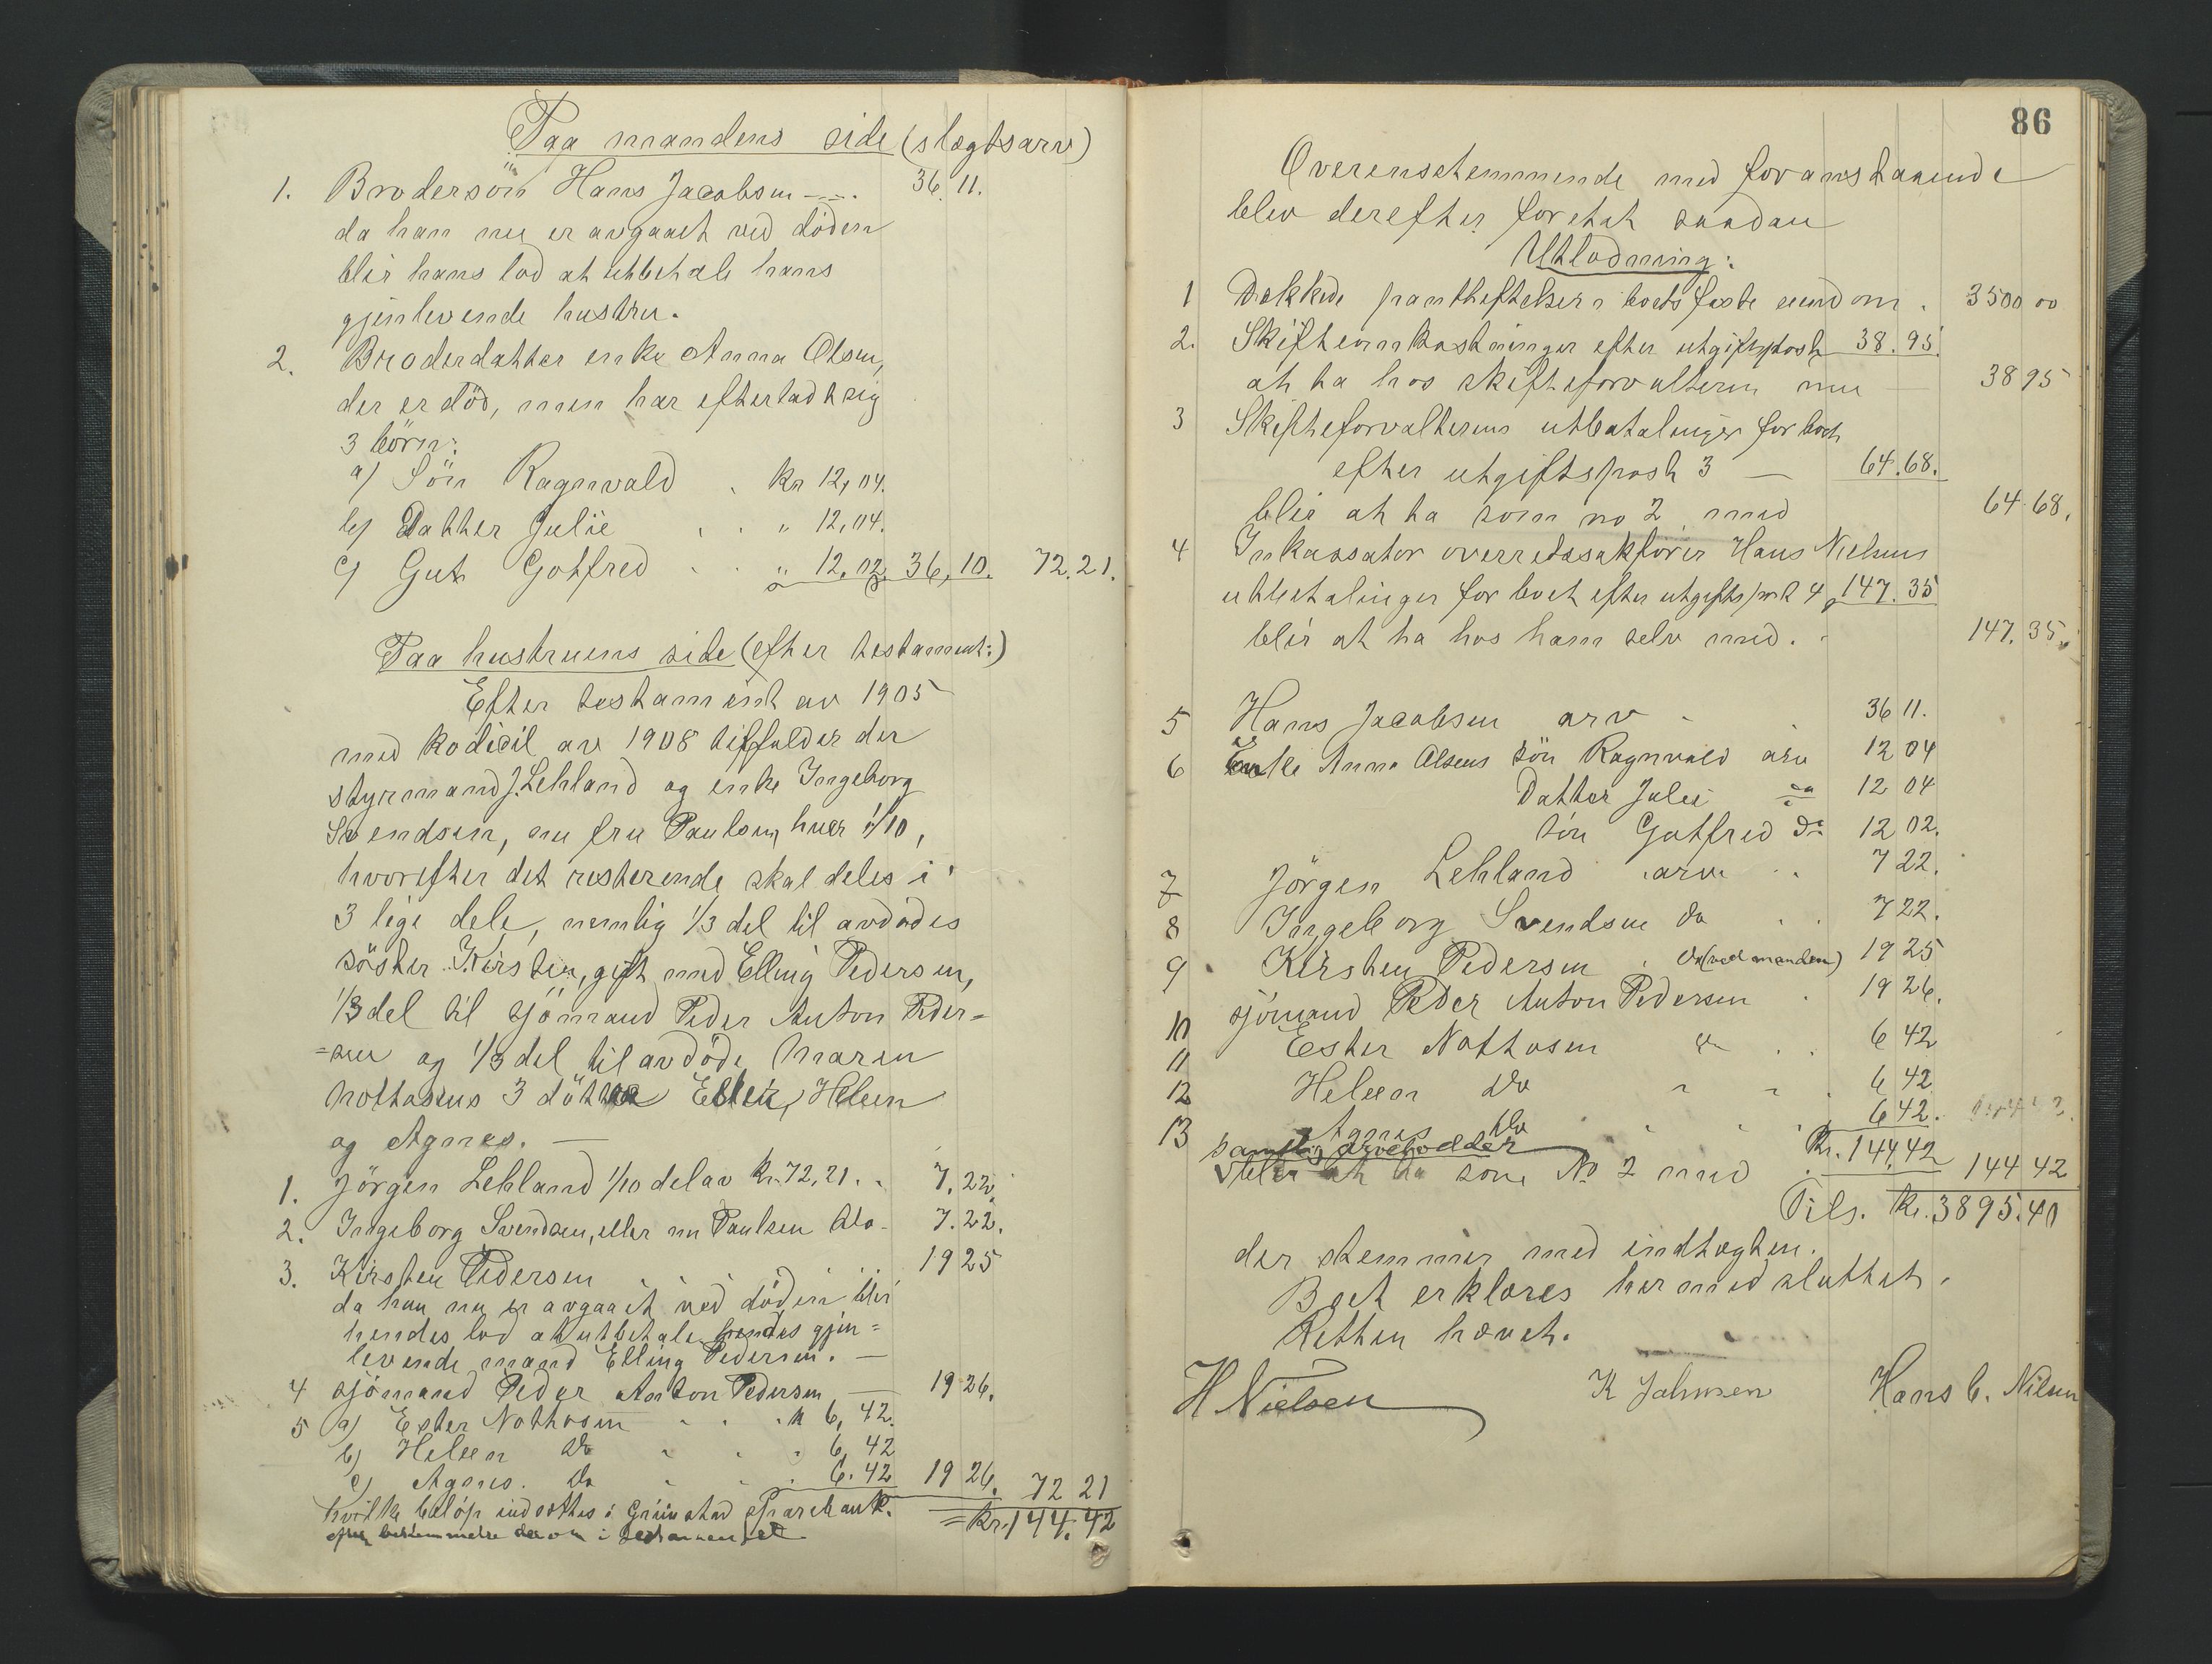 Paa mandens side (slægtsarv)
1. Brodersön Hans Jacobsen 36.11.
da han nu er avgaaet ved döden
blir hans lod at utbetale hans
gjenlevende hustru.
2. Broderdatter enke Anna Olsen,
der er död, men har efterladt sig
3 börn:
a) Sön Ragnvald . Kr 12,04.
b) Datter Julie . . " 12,04.
c) Gut Gotfred . . " 12,02 36,10. 72.21.
Paa hustruens side (efter testament:)
Efter testament av 1905
med kodicil av 1908 tilfalder der
styrmand J. Lehland og enke Ingeborg
Svendsen, nu fru Paulsen, hver 1/10,
hvorefter det resterende skal deles i
3 lige dele, nemlig 1/3 del til avdödes
söster Kirsten, gift med Elling Pedersen,
1/3 del til sjömand Peder Anton Peder=
=sen og 1/3 del til avdöde Maren
Nottosens 3 dötre Ester, Heleen
og Agnes. —
1. Jörgen Lehland 1/10 del av Kr. 72,21. . 7,22.
2. Ingeborg Svendsen, eller nu Paulsen do- 7.22.
3. Kirsten Pedersen . . . 19 25
da hun nu er avgaaet ved döden blir
hendes lod at utbetale hendes gjen=
levende mand Elling Pedersen. —
4 sjömand Peder Anton Pedersen — 19 26.
5 a) Ester Nottosen . . . k 6, 42.
b) Heleen do . . . 6, 42
c) Agnes. do . . . 6. 42 19 26. 72 21
hvilke belöp indsættes i Grimstad Sparebank. =Kr. 144.42
efter bestemmelse derom i testamentet
86
Overensstemmende med foranstaaende
blev derefter foretat saadan
Utlodning:
1 Dækkede pantheftelser i boets faste eiendom . 3500 00
2. Skifteomkostninger efter utgiftspost 38.95.
at ta hos skifteforvalteren med — 38 95
3 Skifteforvalterens utbetalinger for boet
efter utgiftspost 3 — 64.68.
blir at ta som no 2 med 64.68.
4 Inkassator overretssakförer Hans Nielsens
utbetalinger for boet efter utgiftspost 4, 147.35
blir at ta hos ham selv med. . 147.35.
5 Hans Jacobsen arv . . 36 11.
6 Enke Anna Olsens sön Ragnvald arv 12 04
Datter Julie do 12 04
sön Gotfred do 12 02.
7 Jörgen Lehland arv . . 7 22.
8 Ingeborg Svendsen do . . 7 22.
9 Kirsten Pedersen . do (ved manden) 19 25
10 sjömand Peder Anton Pedersen . 19 26.
11 Ester Nottosen do . . 6 42
12 Heleen do . . . 6 42
13 Agnes do . . . 6 42.
samtlig arvelodder Kr. 144,42
blir at ta som No 2 med 144 42
Tils. Kr. 3895.40
der stemmer med indtægten.
Boet erklæres hermed sluttet.
Retten hævet.
H Nielsen K Jahnsen Hans C. Nilsen